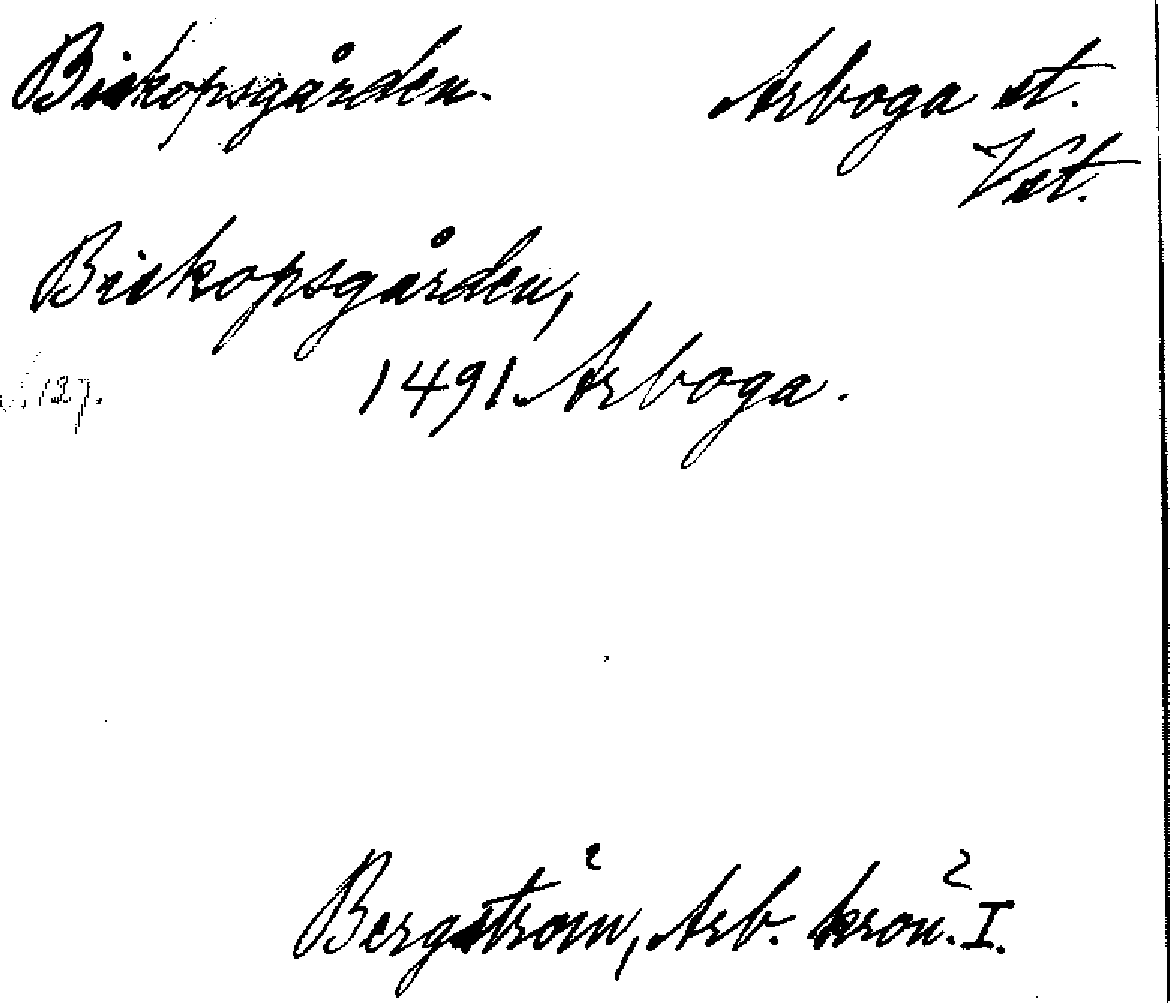 Biskopsgården. Arboga st.
Vstm.
Biskopsgården,
s. 127. 1491. Arboga.
Bergström, Arb. krön. I.